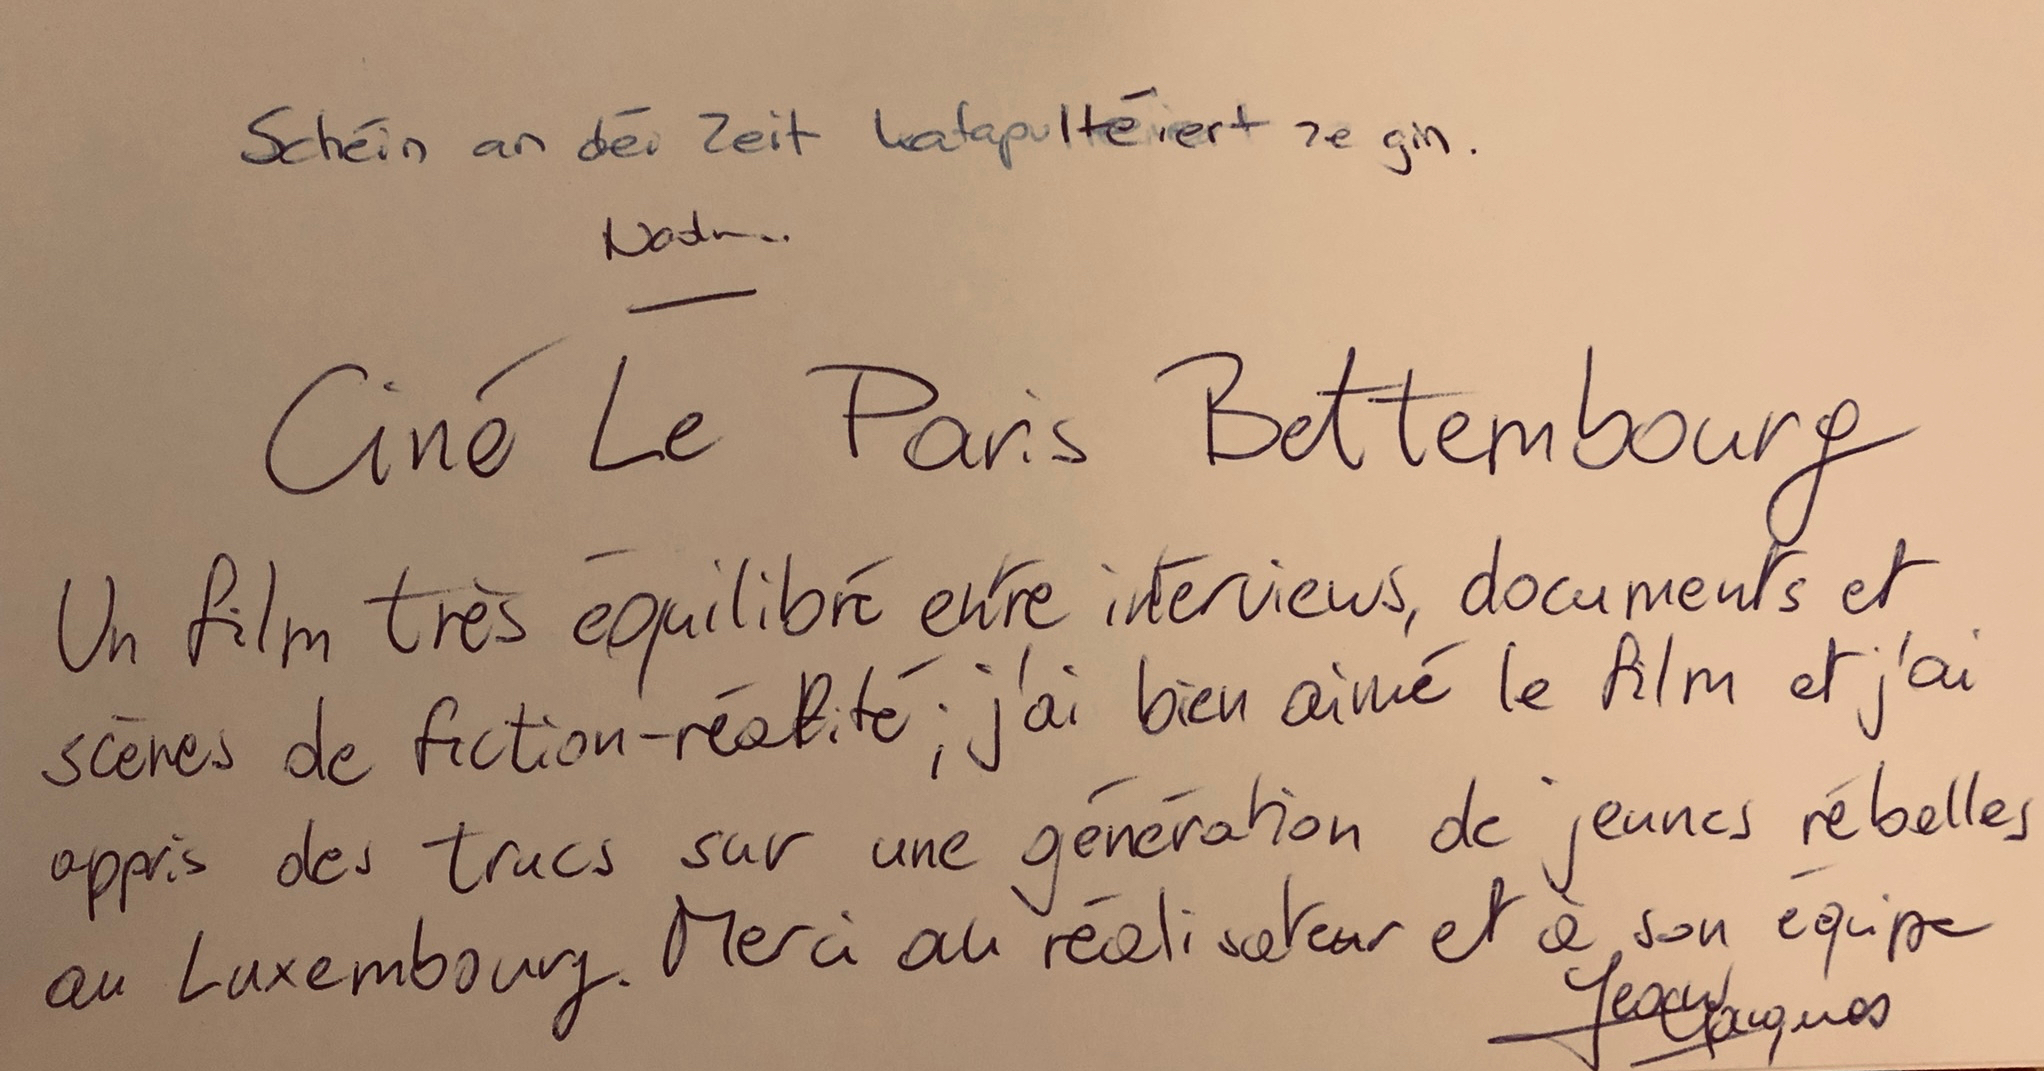 Schéin an déi Zeit katapultéiert ze gin.
Ciné Le Paris Bettembourg
Un film très équilibré entre interviews, documents et
scènes de fiction-réalité; j'ai bien aimé le film et j'ai
appris des trucs sur une génération de jeunes rébelles
au Luxembourg. Merci au réalisateur et à son équipe
Jean Jacques